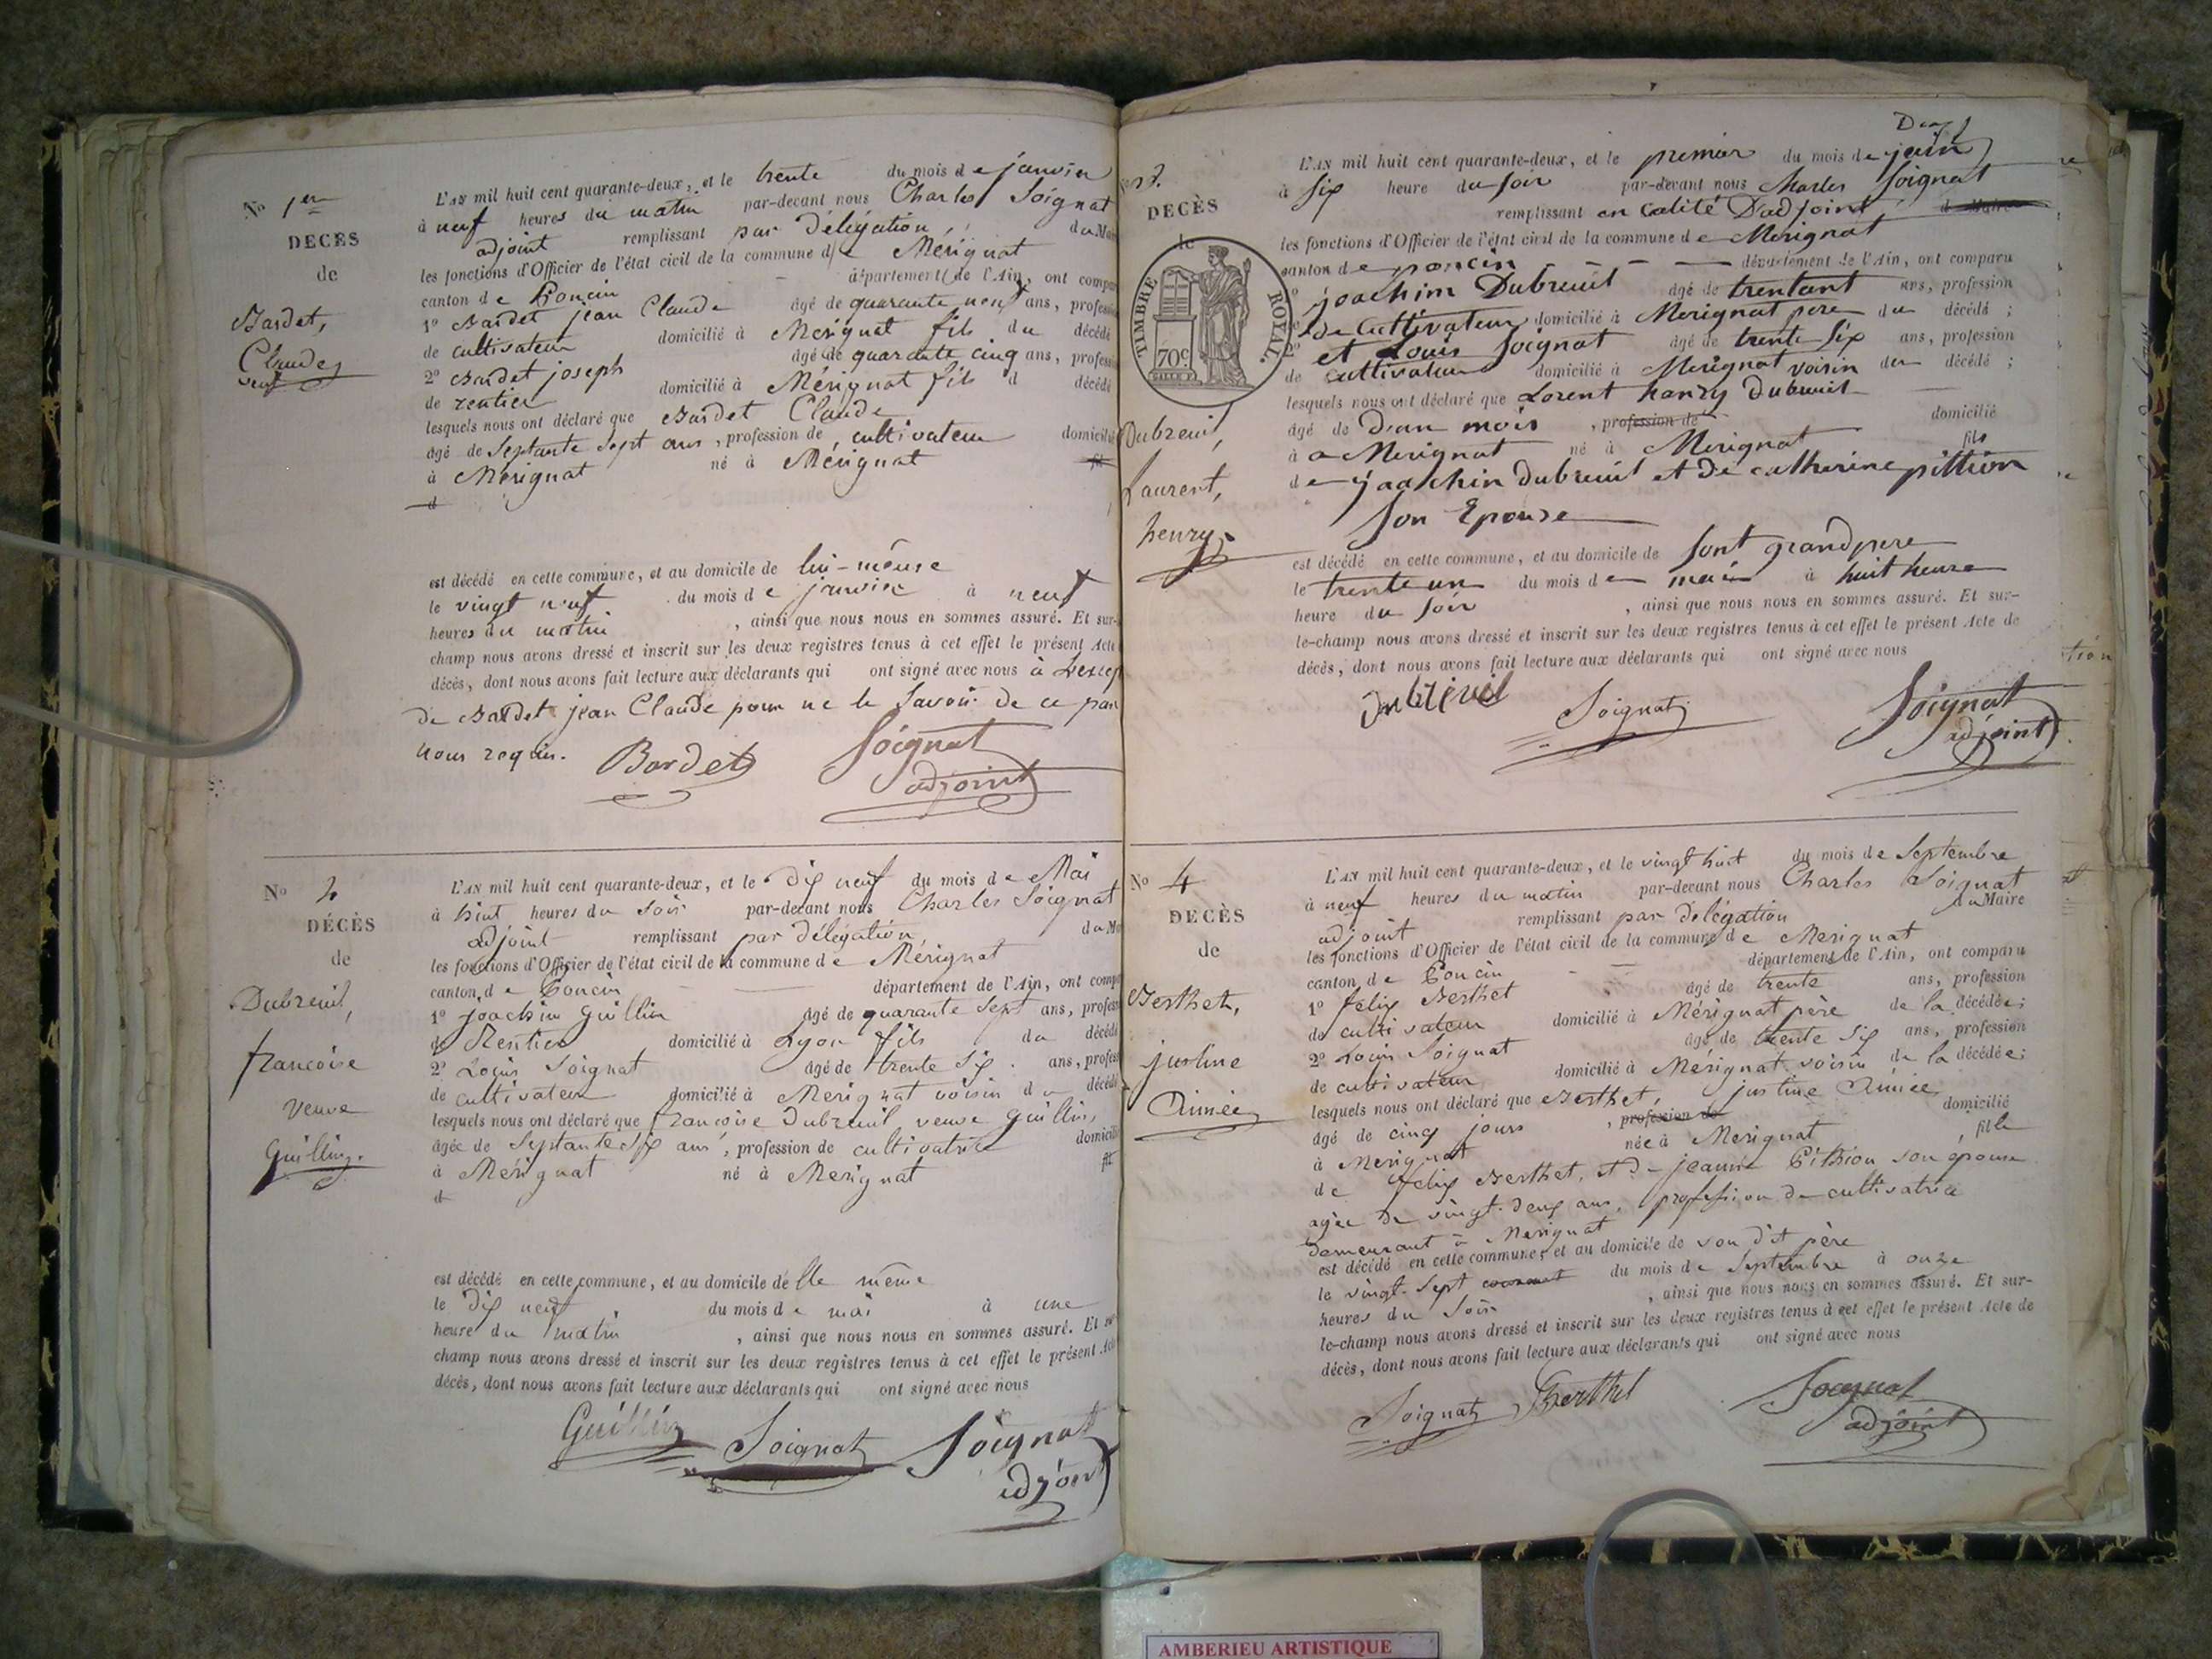 No 1er
DECÈS
de
Bardet,
Claude
veuf
L'AN mil huit cent quarante-deux, et le trente du mois de janvier
à neuf heures du matin par-devant nous Charles Soignat
adjoint remplissant par délégation du Mai
les fonctions d'Officier de l'état civil de la commune de Mérignat
canton de Poncin département de l'Ain, ont compa
1o Bardet jean Claude âgé de quarante neuf ans, profess
de cultivateur domicilié à Merignat fils du décédé
2o Bardet joseph âgé de quarante cinq ans, profess
de rentier domicilié à Mérignat fils d décédé
lesquels nous ont déclaré que Bardet Claude
âgé de septante sept ans, profession de cultivateur domicilié
à Mérignat né à Mérignat fil
d
est décédé en cette commune, et au domicile de lui-même
le vingt neuf du mois de janvier à neuf
heures du matin, ainsi que nous nous en sommes assuré. Et sur-
champ nous avons dressé et inscrit sur les deux registres tenus à cet effet le présent Acte
décès, dont nous avons fait lecture aux déclarants qui ont signé avec nous à L'excep
de Bardet jean Claude pour ne le Savoir de ce par
nous requis.
Bardet
Soignat
adjoint
No 2
DÉCÈS
de
Dubreuil,
francoise
veuve
Guillin.
L'AN mil huit cent quarante-deux, et le dix neuf du mois de Mai
à huit heures du soir par-devant nous Charles Soignat
adjoint remplissant par délégation du Ma
les fonctions d'Officier de l'état civil de la commune de Mérignat
canton de Poncin département de l'Ain, ont compa
1o joachim Guillin âgé de quarante sept ans, profess
de Rentier domicilié à Lyon fils du décédé
2o Louis Soignat âgé de trente six ans, profess
de cultivateur domicilié à Merignat voisin du décédé
lesquels nous ont déclaré que francoise Dubreuil veuve Guillin,
âgée de septante six ans, profession de cultivatrice domicilié
à Mérignat né à Merignat fil
d
est décédé en cette commune, et au domicile de elle même
le dix neuf du mois de mai à une
heure du matin, ainsi que nous nous en sommes assuré. Et sur
champ nous avons dressé et inscrit sur les deux registres tenus à cet effet le présent Acte
décès, dont nous avons fait lecture aux déclarants qui ont signé avec nous
Guillin Soignat Soignat
adjoint
DECÈS
de
TIMBRE ROYAL.
70c
Dubreuil,
Laurent,
henry
L'AN mil huit cent quarante-deux, et le premier du mois de juin
à six heure du soir par-devant nous Charles Soignat
remplissant en calité D'adjoint d Maire
les fonctions d'Officier de l'état civil de la commune de Merignat
canton de poncin département de l'Ain, ont comparu
joachim Dubreuil âgé de trentant ans, profession
de Cultivateur domicilié à Merignat pere du décédé;
2o et Louis Soignat âgé de trente six ans, profession
de cultivateur domicilié à Merignat voisin du décédé;
lesquels nous ont déclaré que Lorent hanry Dubreuil
âgé de D'un mois, profession de domicilié
à a Merignat né à Merignat fils
de joachin Dubreuil et De catherine pittion
son Epouse
est décédé en cette commune, et au domicile de sont grand pere
le trente un du mois de mai à huit heure
heure du soir, ainsi que nous nous en sommes assuré. Et sur-
le-champ nous avons dressé et inscrit sur les deux registres tenus à cet effet le présent Acte de
décès, dont nous avons fait lecture aux déclarants qui ont signé avec nous
Dubreuil
Soignat
Soignat
adjoint
No 4
DECÈS
de
Berthet,
justine
Aimée
L'AN mil huit cent quarante-deux, et le vingt huit du mois de Septembre
à neuf heures du matin par-devant nous Charles Soignat
adjoint remplissant par délégation du Maire
les fonctions d'Officier de l'état civil de la commune de Merignat
canton de Poncin département de l'Ain, ont comparu
1o felix Berthet âgé de trente ans, profession
de cultivateur domicilié à Mérignat père de la décédée;
2o Louis Soignat âgé de trente six ans, profession
de cultivateur domicilié à Mérignat voisin de la décédée;
lesquels nous ont déclaré que Berthet, justine Aimée
âgé de cinq jours, profession de domicilié
à Merignat née à Merignat, fille
de felix Berthet, et de jeannie Pithion son épouse
agée de vingt-deux ans, profession de cultivatrice
demeurant à Merignat
est décédé en cette commune, et au domicile de son dit père
le vingt-sept courant du mois de Septembre à onze
heures du soir, ainsi que nous nous en sommes assuré. Et sur-
le-champ nous avons dressé et inscrit sur les deux registres tenus à cet effet le présent Acte de
décès, dont nous avons fait lecture aux déclarants qui ont signé avec nous
Soignat Berthet
Soignat
adjoint
AMBERIEU ARTISTIQUE